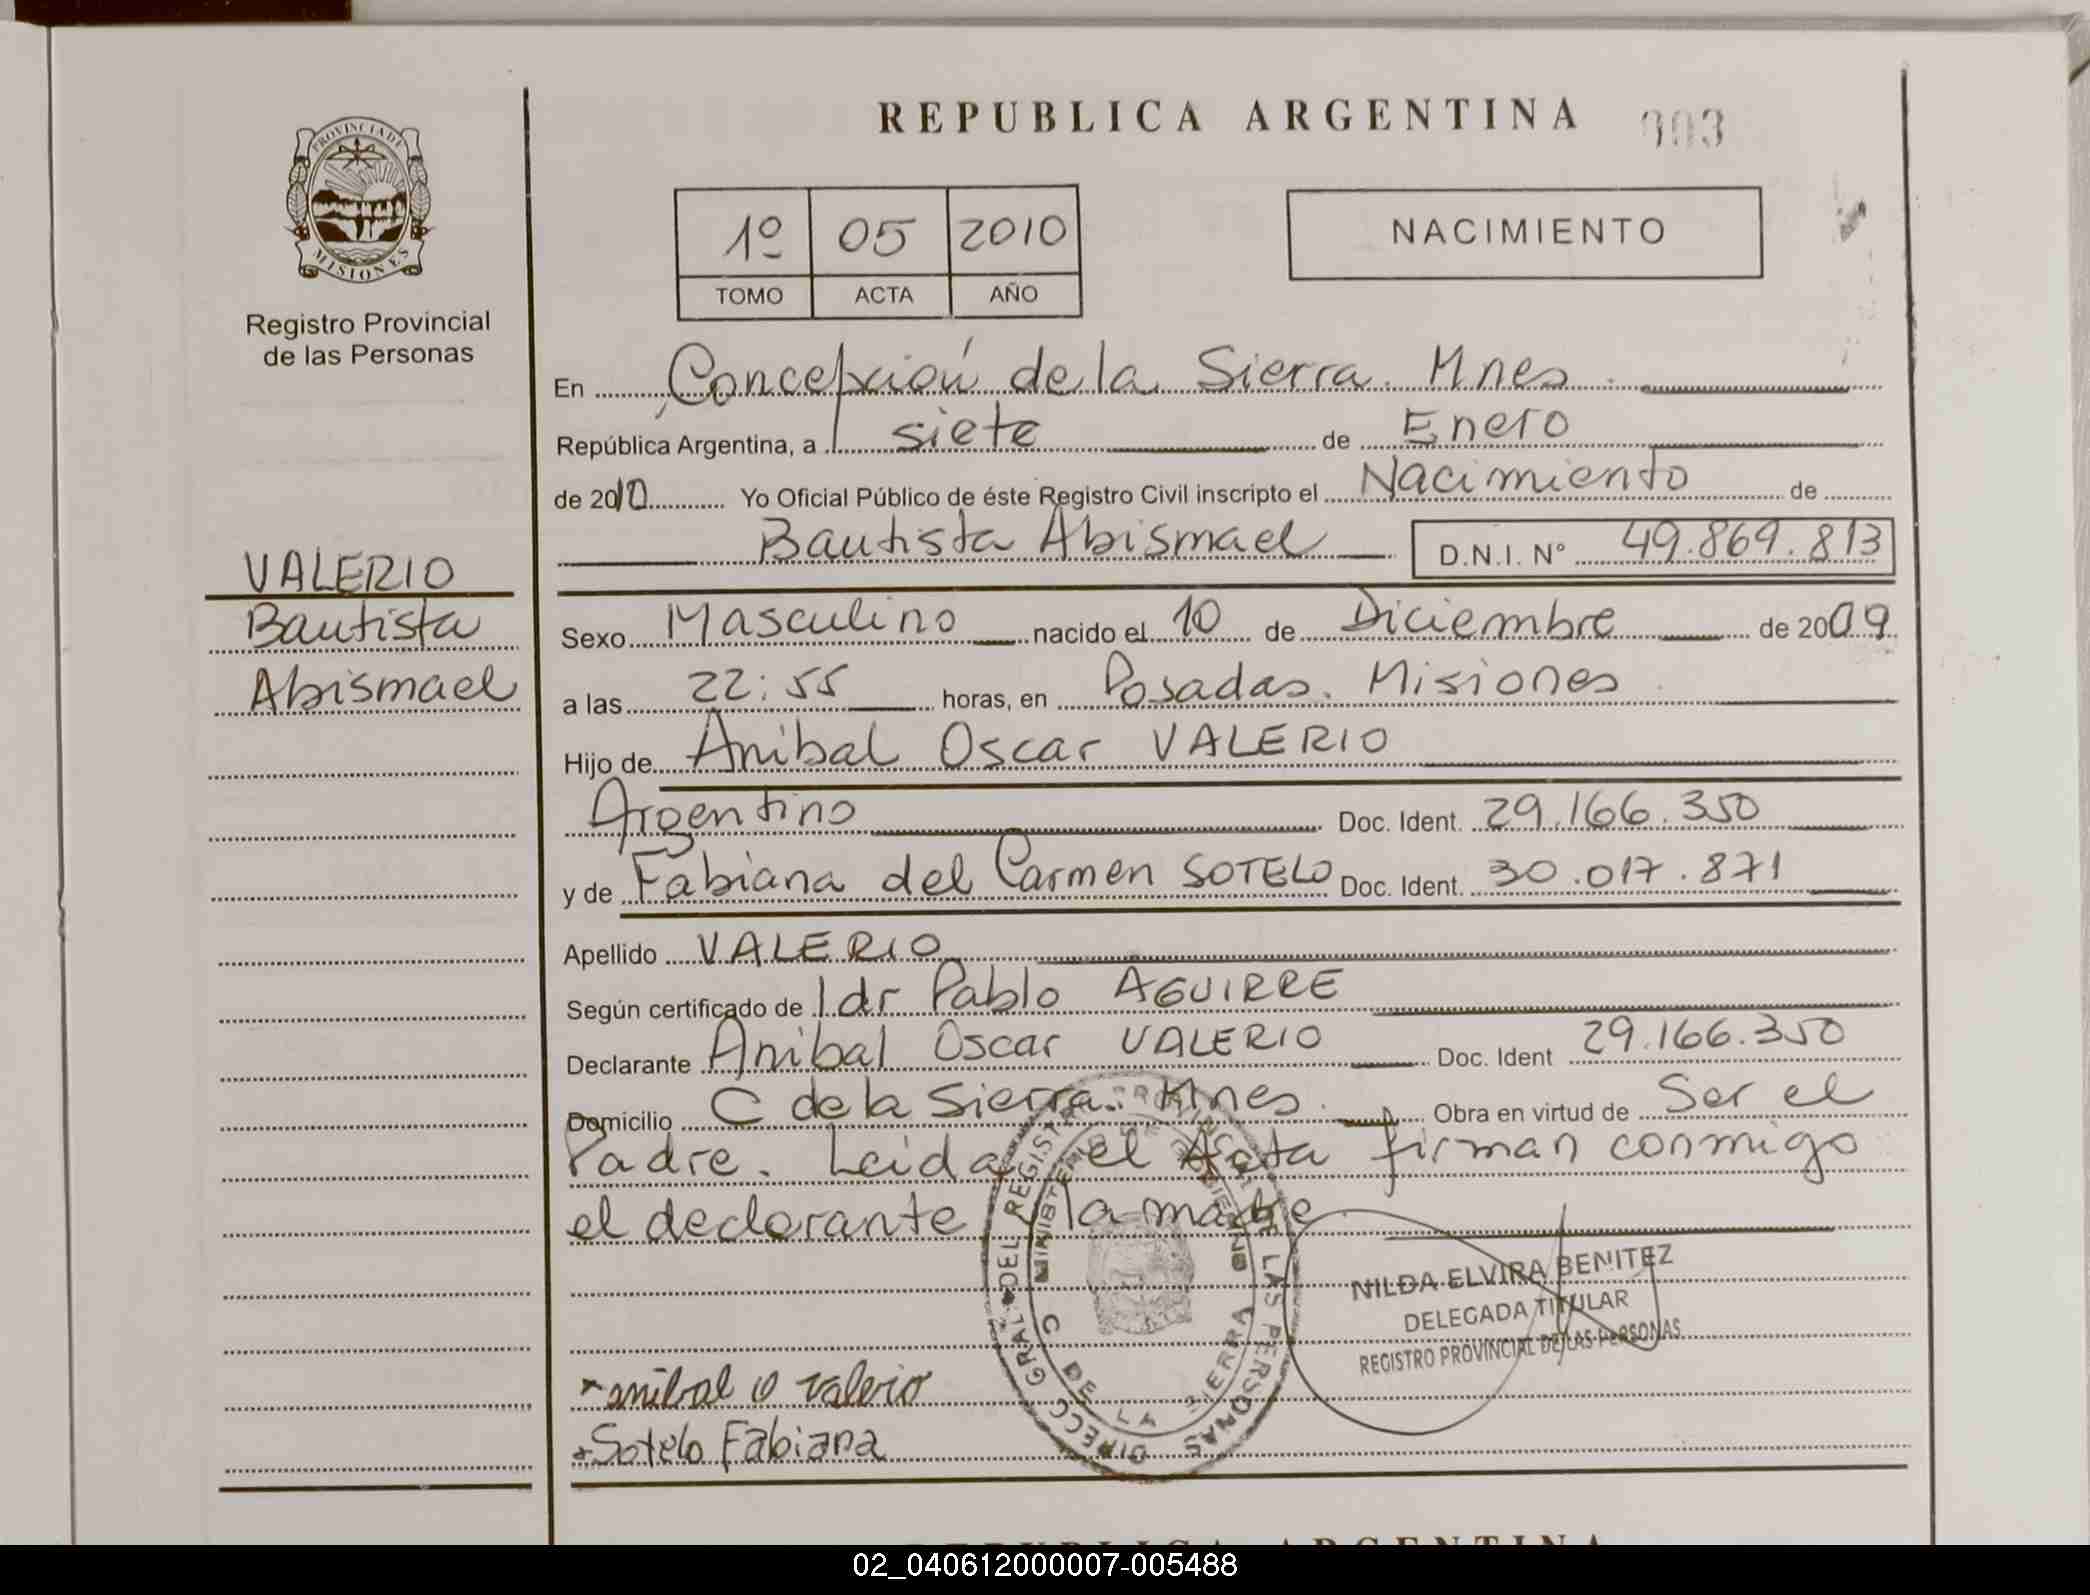 REPUBLICA ARGENTINA 003
PROVINCIA DE
MISIONES
Registro Provincial
de las Personas
1º 05 2010
TOMO ACTA AÑO
NACIMIENTO
En Concepción de la Sierra. Mnes.
República Argentina, a siete de Enero
de 2010 Yo Oficial Público de éste Registro Civil inscripto el Nacimiento de
Bautista Abismael D.N.I. Nº 49.869.813
VALERIO
Bautista
Abismael
Sexo Masculino nacido el 10 de Diciembre de 2009
a las 22:55 horas, en Posadas. Misiones
Hijo de Anibal Oscar VALERIO
Argentino Doc. Ident. 29.166.350
y de Fabiana del Carmen SOTELO Doc. Ident. 30.017.871
Apellido VALERIO
Según certificado de 1 dr Pablo AGUIRRE
Declarante Anibal Oscar VALERIO Doc. Ident 29.166.350
Domicilio C de la Sierra. Mnes. Obra en virtud de Ser el
Padre. Leida el Acta firman conmigo
el declarante y la madre
DIRECC GRAL DEL REGISTRO PROVINCIAL DE LAS PERSONAS
MINISTERIO DE GOBIERNO
C DE LA SIERRA
NILDA ELVIRA BENITEZ
DELEGADA TITULAR
REGISTRO PROVINCIAL DE LAS PERSONAS
anibal O valerio
Sotelo Fabiana
REPUBLICA ARGENTINA
02_040612000007-005488